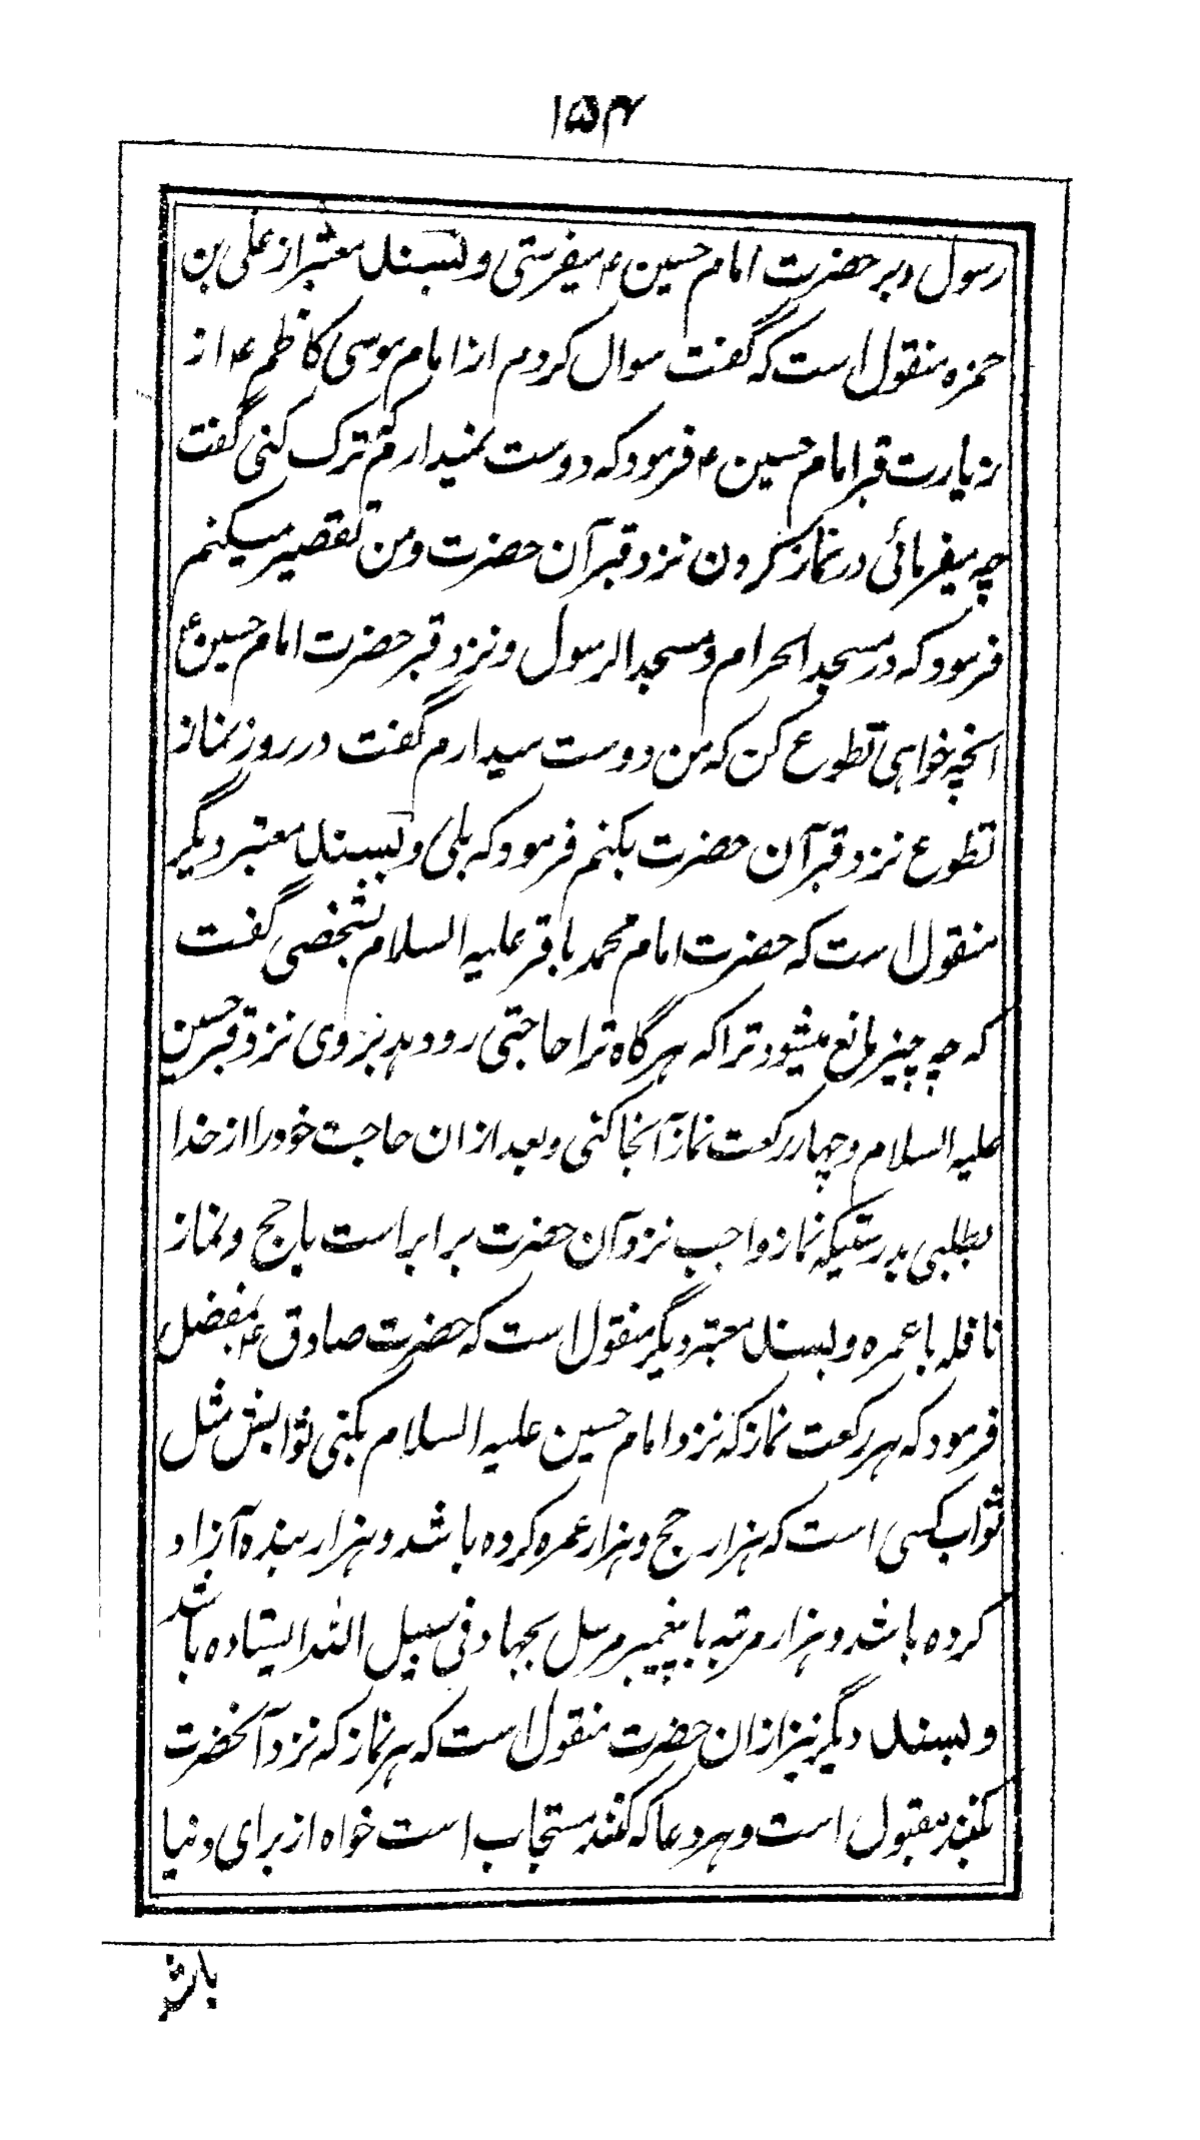 ۱۵۴
رسول و بر حضرت امام حسین ع میفرستی و بسند معتبر از علی بن
حمزه منقول است که گفت سوال کردم از امام موسی کاظم ع از
زیارت قبر امام حسین ع فرمود که دوست نمیدارم ترک کنی گفت
چه میفرمائی در نماز کردن نزد قبر آن حضرت و من تقصیر میکنم
فرمود که در مسجد الحرام و مسجد الرسول و نزد قبر حضرت امام حسین ع
انچه خواهی تطوع کن که من دوست میدارم گفت در روز نماز
تطوع نزد قبر آن حضرت بکنم فرمود که بلی و بسند معتبر دیگر
منقول است که حضرت امام محمد باقر علیه السلام بشخصی گفت
که چه چیز مانع میشود ترا که هرگاه ترا حاجتی رو دهد بروی نزد قبر حسین
علیه السلام و چهار رکعت نماز آنجا کنی و بعد ازان حاجت خود را از خدا
بطلبی بدرستیکه نماز واجب نزد آن حضرت برابر است با حج و نماز
نافله با عمره و بسند معتبر دیگر منقول است که حضرت صادق ع بمفضل
فرمود که هر رکعت نماز که نزد امام حسین علیه السلام بکنی ثوابش مثل
ثواب کسی است که هزار حج و هزار عمره کرده باشد و هزار بنده آزاد
کرده باشد و هزار مرتبه با پیغمبر مرسل بجهاد فی سبیل الله ایستاده باشد
و بسند دیگر نیز ازان حضرت منقول است که هر نماز که نزد آنحضرت
بکنند مقبول است و هر دعا که کنند مستجاب است خواه از برای دنیا
باشد